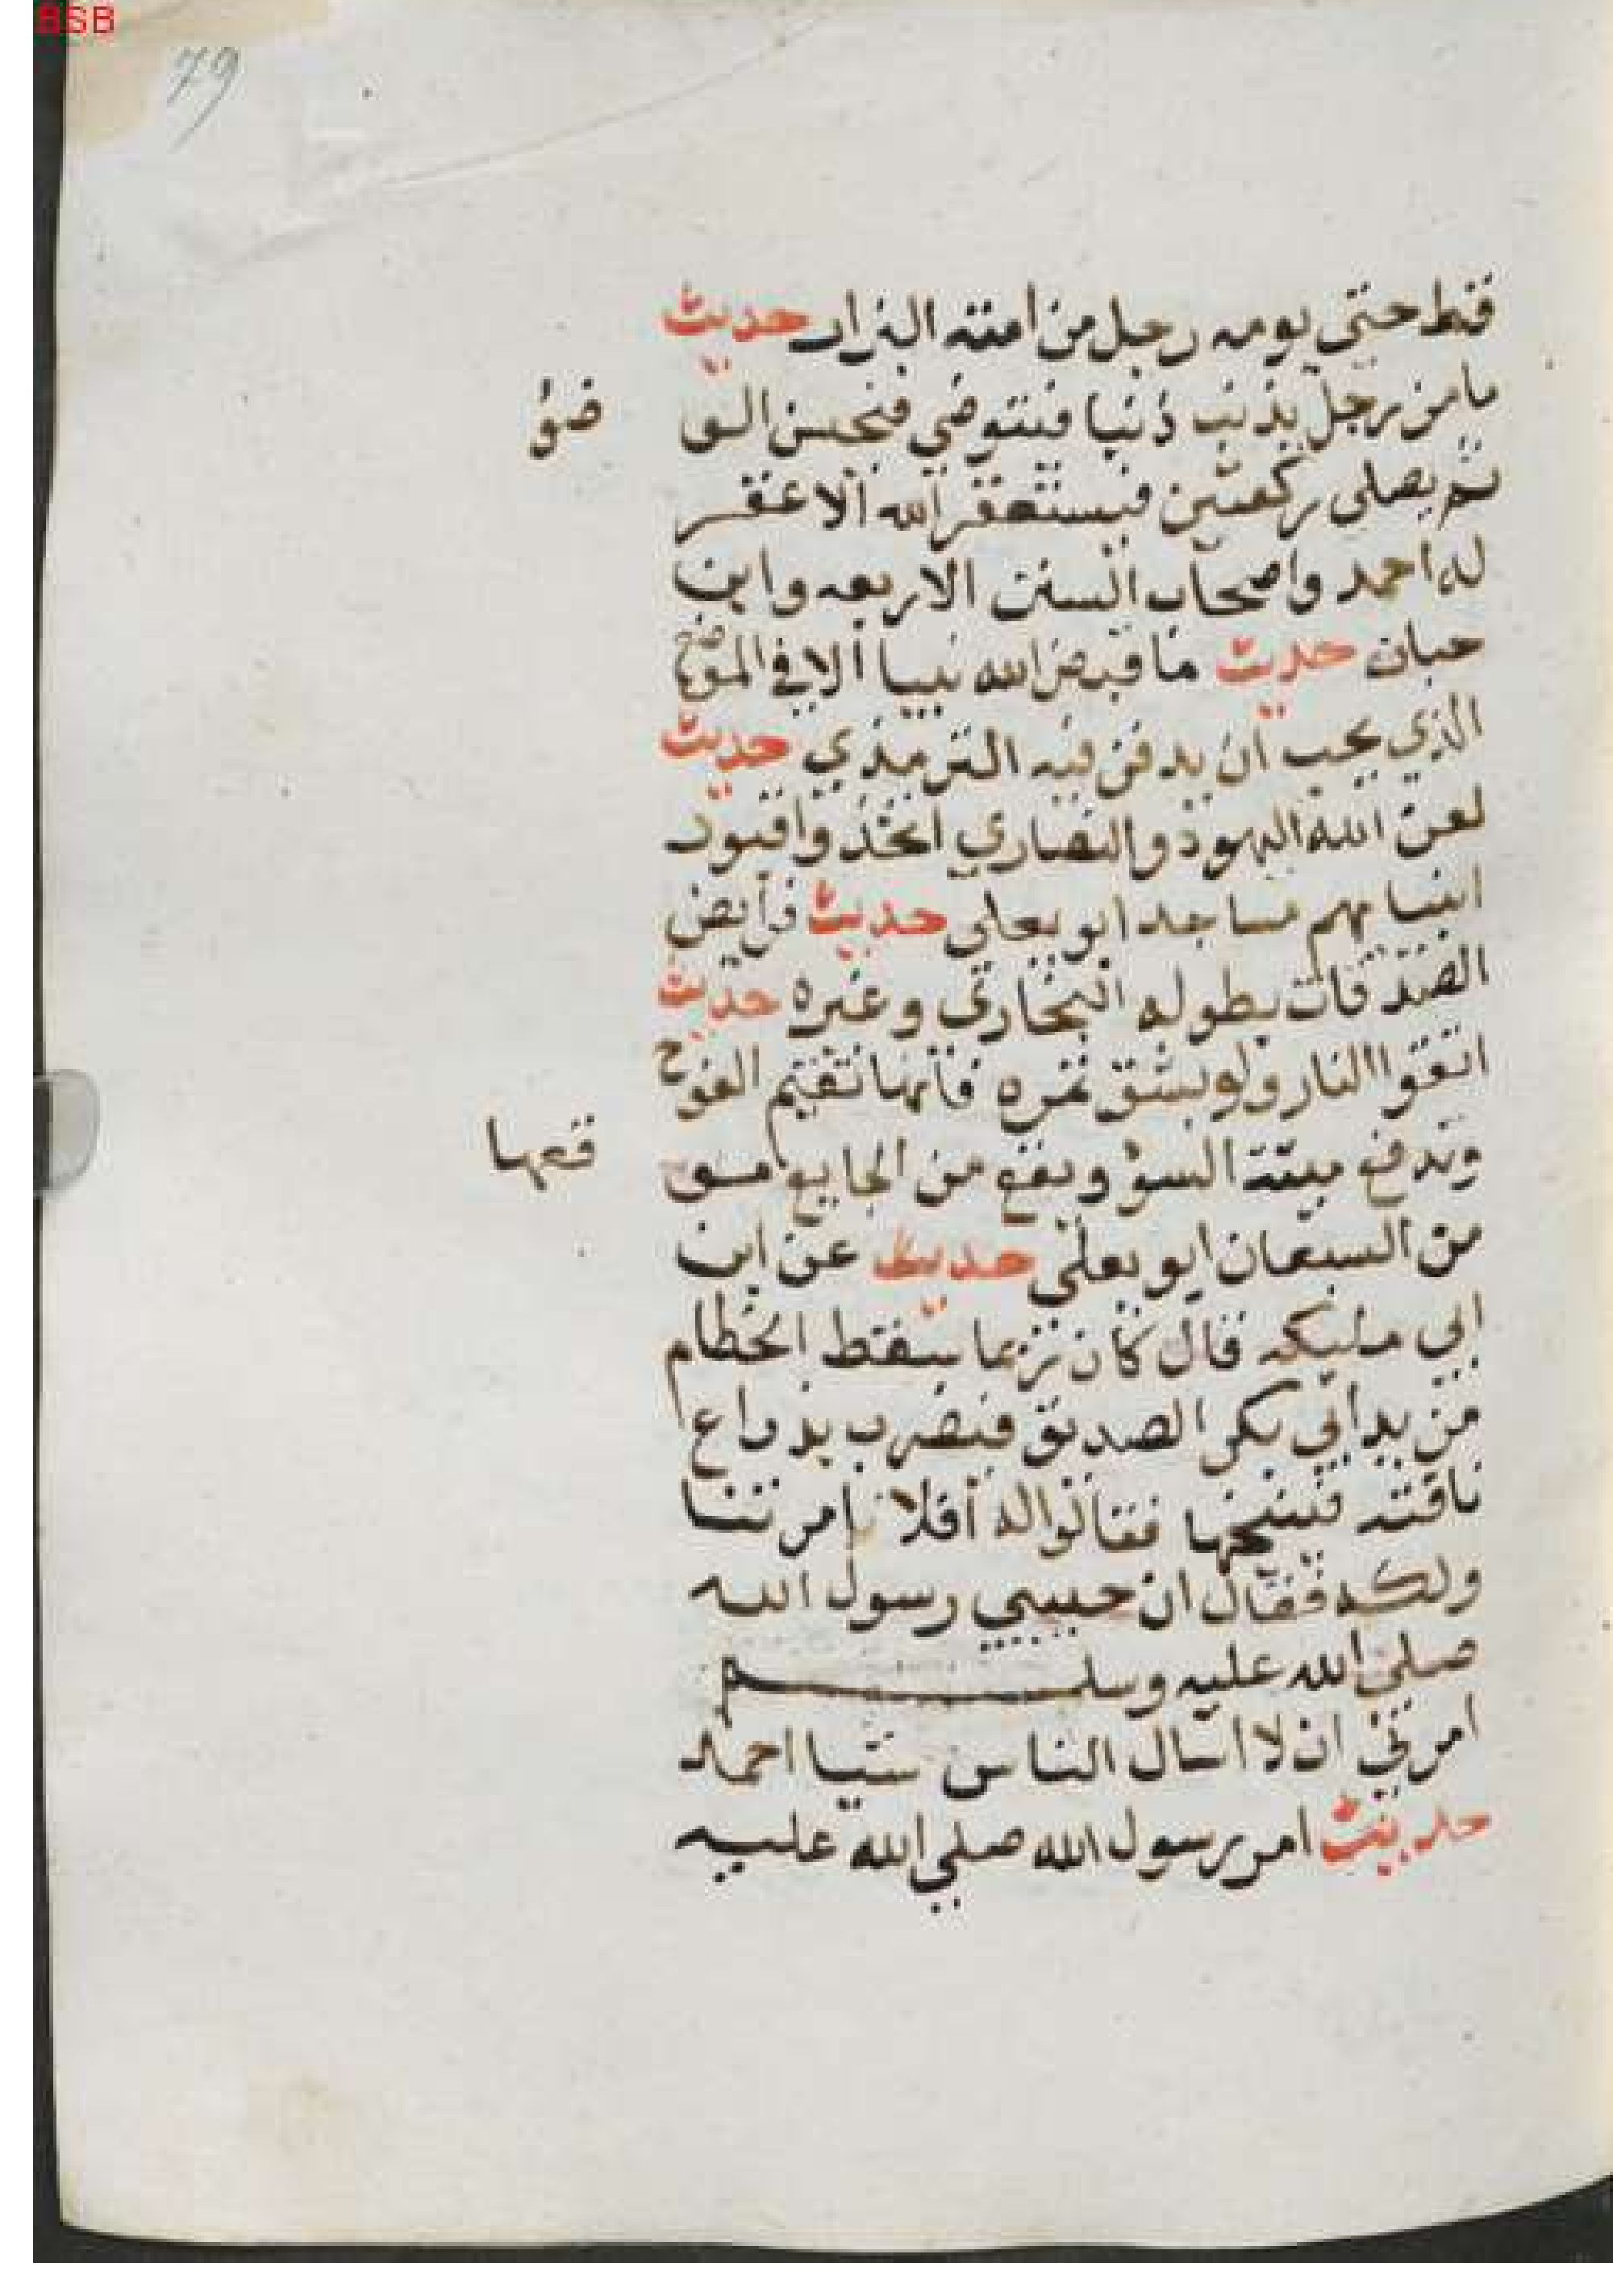 BSB
79
قط حتي يومه رجل من امته البزار حديث
ما من رجل يذنب ذنبا فيتوضي فيحسن الو
ضؤ
ثم يصلي ركعتين فيستغفر الله الا غفر
له احمد واصحاب السنن الاربعه وابن
حبان حديث ما قبض الله نبيا الا في الموضع
الذي يحب ان يدفن فيه الترمذي حديث
لعن الله اليهود والنصاري اتخذوا قبور
انبيايهم مساجد ابو يعلي حديث فرايض
الصدقات بطوله البخاري وغيره حديث
اتقوا النار ولو بشق تمره فانها تقيم العوج
وتدفع ميتة السؤ وتقع من الجايع مو
قعها
من السبعان ابو يعلي حديث عن ابن
ابي مليكه قال كان ربما سقط الخطام
من يد ابي بكر الصديق فيضرب بذراع
ناقته فينيخها فقالوا له افلا امرتنا
ولكه فقال ان حبيبي رسول الله
صلي الله عليه وسلم
امرني ان لا اسال الناس شيا احمد
حديث امر رسول الله صلي الله عليه